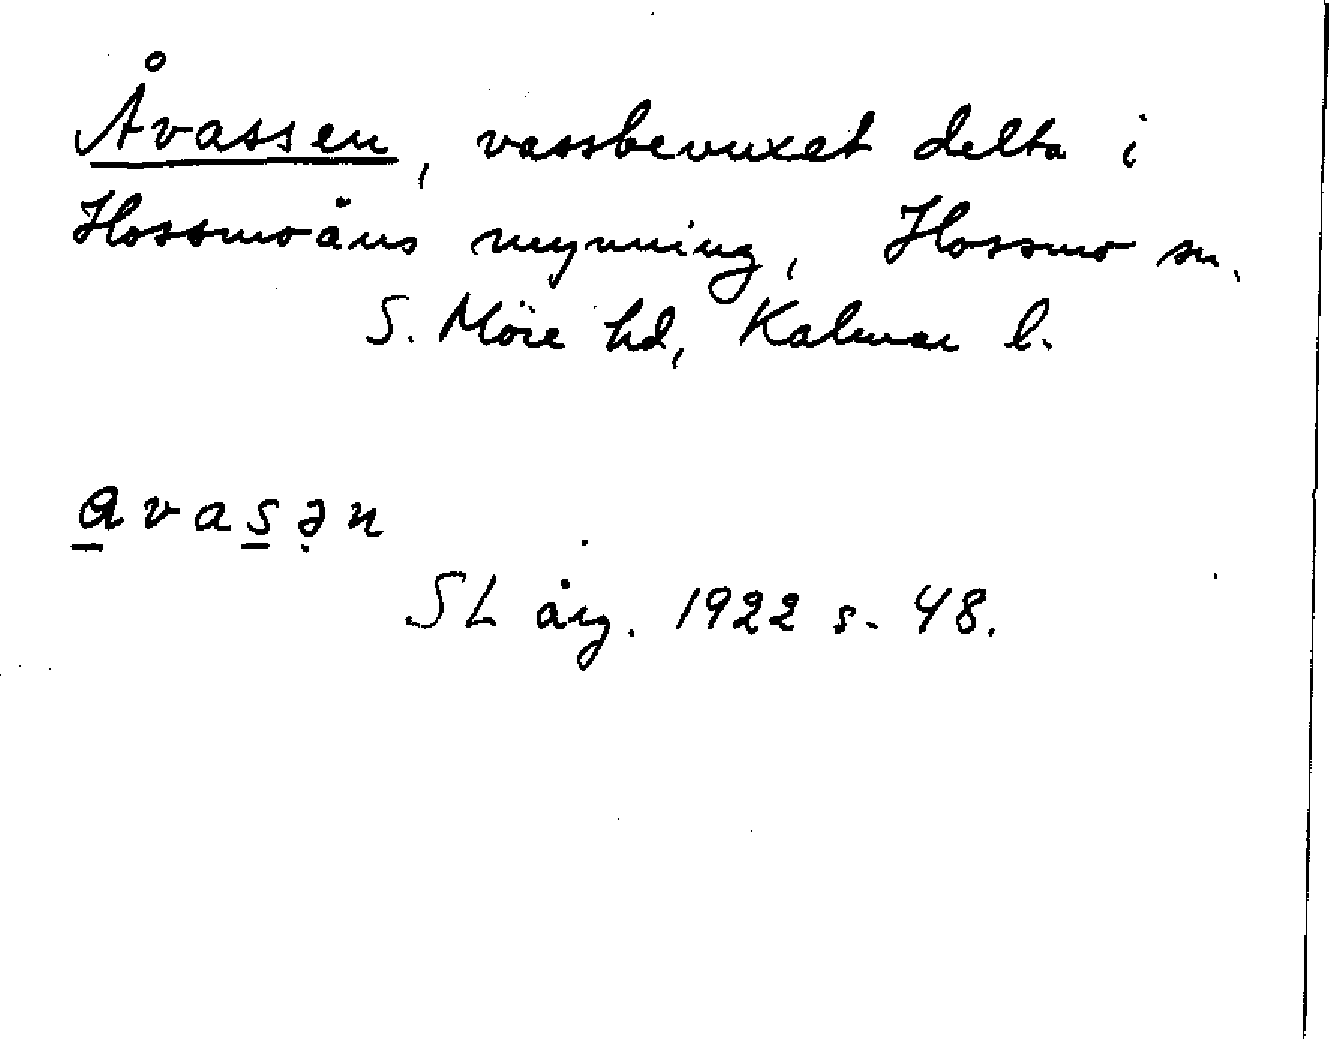 Åvassen, vassbevuxet delta i
Hossmoåns mynning, Hossmo sn.
S. Möre hd, Kalmar l.
a̲vas̲ə̣n
SL årg. 1922 s. 48.